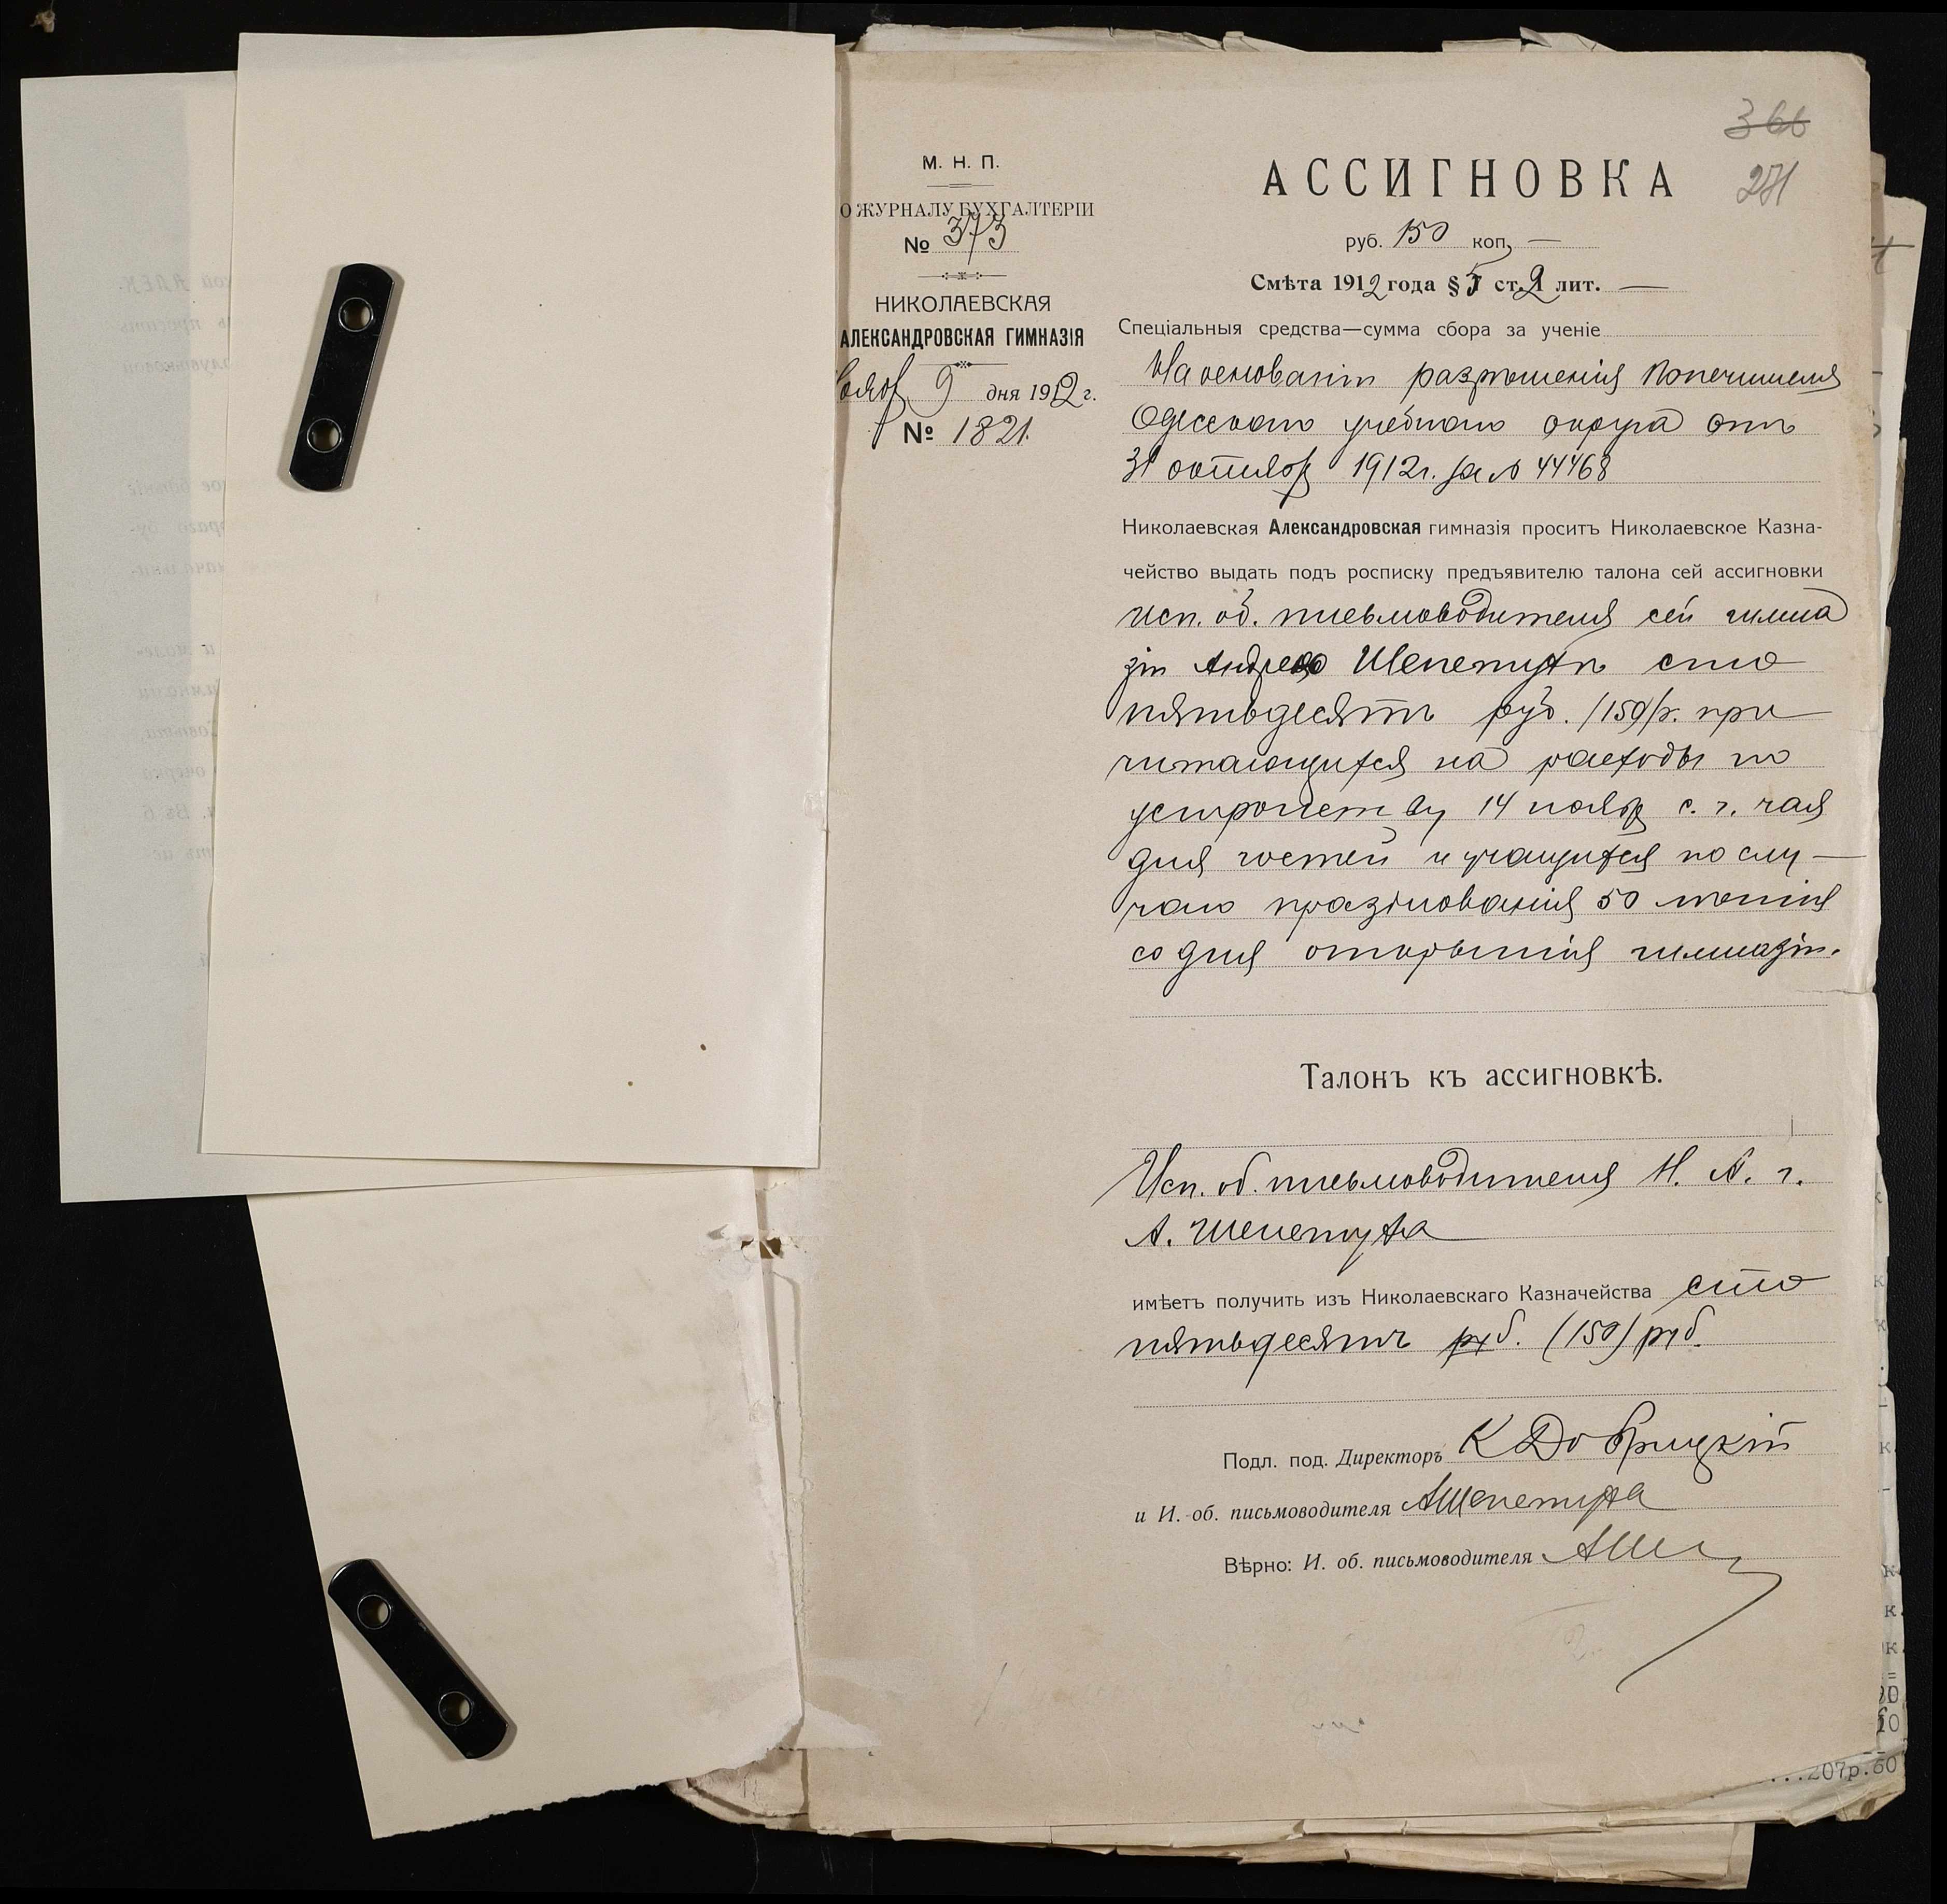 366
271
М. Н. П.
О ЖУРНАЛУ БУХГАЛТЕРІИ
№ 373
НИКОЛАЕВСКАЯ
АЛЕКСАНДРОВСКАЯ ГИМНАЗІЯ
9 дня 1912 г.
№ 1821.
АССИГНОВКА
руб. 150 коп. —
Смѣта 1912 года § 5 ст. 2 лит. —
Спеціальныя средства—сумма сбора за ученіе
На основаніи разрѣшенія Попечителя
Одесскаго учебнаго округа отъ
31 октября 1912 г. за № 44468
Николаевская Александровская гимназія проситъ Николаевское Казна-
чейство выдать подъ росписку предъявителю талона сей ассигновки
исп. об. письмоводителя сей гимна
зіи Андрею Шепетухѣ сто
пятьдесятъ руб. /150/ р. при
читающихся на расходы по
устройству 14 ноября с. г. чая
для гостей и учащихся по слу-
чаю празднованія 50 лѣтія
со дня открытія гимназіи.
Талонъ къ ассигновкѣ.
Исп. об. письмоводителя Н. А. г.
А. Шепетуха
имѣетъ получить изъ Николаевскаго Казначейства сто
пятьдесятъ руб. (150) руб.
Подл. под. Директоръ К Добрицкій
и И. об. письмоводителя АШепетуха
Вѣрно: И. об. письмоводителя АШ
...207р.60